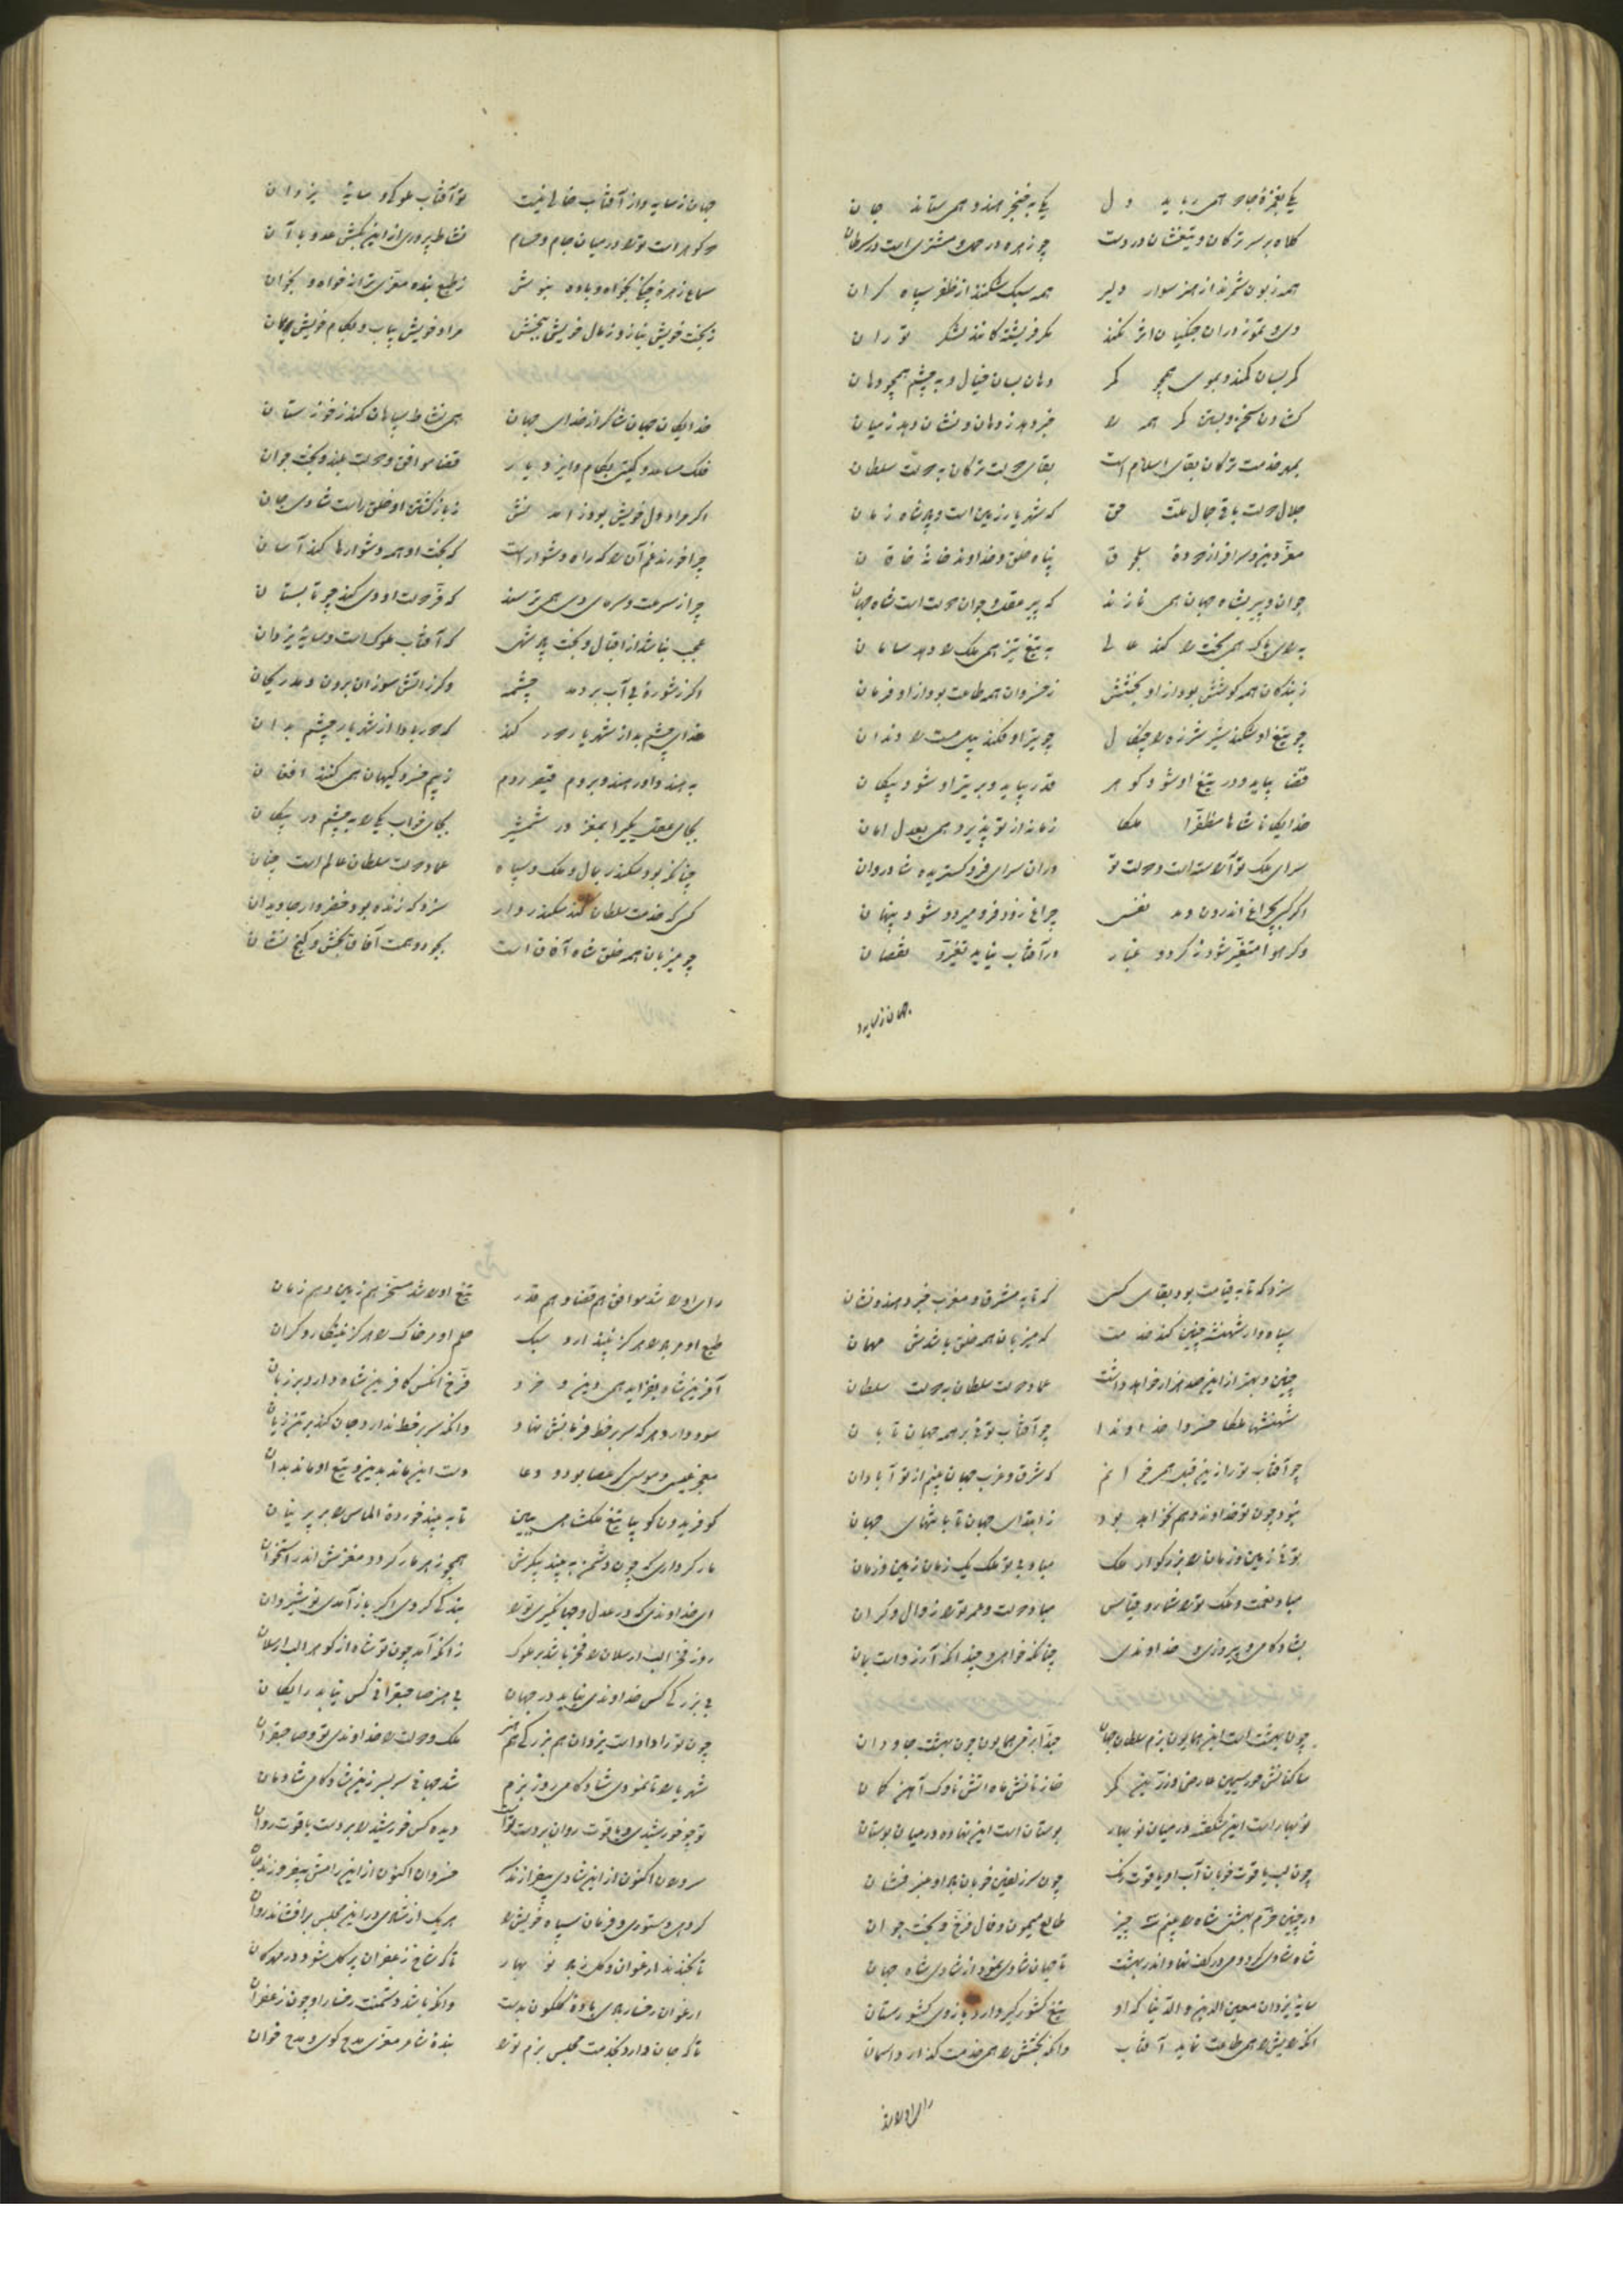 یکی بغمزهٔ جادو همی رباید دل یکی به خنجر هندو همی ستاند جان
کلاه بر سر ترکان و تیغشان در دست چو زهره در حمل و مشتری است در سرطان
همه زبون شمرند از هنر سوار دلیر همه سبک شکنند از ظفر سپاه گران
مگر فریشته‌کانند لشکر توران
کمر بسان کمند و بموی همچو کمر دهان بسان خیال و به چشم همچو دهان
خبر دهد ز دهان و نشان دهد ز میان
بقای دولت ترکان به دولت سلطان
جلال دولت باقی جمال ملت حق که شهریار زمین است و پادشاه زمان
معز دین و سرافراز دودهٔ سلجوق پناه خلق و خداوند خانهٔ خاقان
جوان و پیر بشاه جهان همی نازند که پیر عقل و جوان دولت است شاه جهان
به رای پاک همی بخت را کند عالی به تیغ تیز همی ملک را دهد سامان
ز بندگان همه کوشش بود از او بخشش ز خسروان همه طاعت بود از او فرمان
چو تیغ او شکند شیر شرزه را چنگال چو تیر او فکند پیل مست را دندان
قضا بیاید و در تیغ او شود گوهر قدر بیاید و بر تیر او شود پیکان
خدایگانا شاها مظفرا ملکا زمانه از تو پذیرد همی بعدل امان
سرای ملک تو آراسته است و دولت تو در آن سرای فرو گستریده شادروان
اگر کسی بچراغ اندرون دمد نفسی چراغ زود فرو میرد و شود پنهان
وگر هوا متغیر شود ز گرد و غبار در آفتاب نیاید تغیر و نقصان
جهان ز سایه و
جهان ز سایه و از آفتاب خالی نیست تو آفتاب ملوکی و سایهٔ یزدان
دو گوهر است تو را در میان جام و حسام نشاط پرور از این و بکش عدو با آن
سماع زهره چنگی بخواه و باده بنوش ز طبع بنده معزی ترانه خواه و بخوان
ز بخت خویش بناز و ز مال خویش ببخش مراد خویش بیاب و بکام خویش بمان
خدایگان جهان شاکر از خدای جهان همی نشاط سپاهان کند ز خوزستان
فلک مساعد و گیتی بکام و ایزد یار قضا موافق و دولت بلند و بخت جوان
اگر مراد دل خویش بود ز آمدنش ز بازگشتن او خلق راست شادی جان
چرا خورند غم آن را که راه دشوار است که بخت او همه دشوارها کند آسان
چرا ز سرعت و سرمای دی همی ترسند که فر دولت او دی کند چو تابستان
عجب نباشد از اقبال و بخت پادشهی که آفتاب ملوک است و سایهٔ یزدان
اگر ز شوره بی آب بردمد چشمه وگر ز آتش سوزان برون دمد ریحان
خدای چشم بد از شهریار دور کند که دور بادا از شهریار چشم بدان
به هند و اور هند و بروم قیصر روم ز بیم خسرو گیهان همی کنند افغان
بجای عقل یکی را بمغز در شمشیر بجای خواب یکی را به چشم در پیکان
چنانکه بود سکندر بمال و ملک و سپاه عماد دولت سلطان عالم است چنان
کسی که خدمت سلطان کند سکندروار سزد که زنده بود خضروار جاویدان
چو میزبان همه خلق شاه آفاق است بجود و همت آفاق بخش و گنج نشان
سزد که تا به قیامت بود بقای کسی که تا به مشرق و مغرب خبر دهند و نشان
سپاه‌دار شهنشه چنین کند خدمت که میزبان همه خلق باشدش مهمان
چنین و بهتر از این صد هزار خواهد داشت عماد دولت سلطان به دولت سلطان
شهنشها ملکا خسروا خداوندا چو آفتاب تویی بر همه جهان تابان
که شرق و غرب جهان بینم از تو آبادان
نبود چون تو خداوند و هم نخواهد بود ز ابتدای جهان تا بانتهای جهان
تویی زمین و زمان را بزرگوار ملک مباد بی تو ملک یک زمان زمین و زمان
مباد نعمت و ملک تو را شمار و قیاس مباد دولت و عمر تو را زوال و کران
بشادکامی و پیروزی و خداوندی چنانکه خواهی و چندانکه آرزوست بمان
چون بهشت است این همایون بزم سلطان جهان حبذا بزمی همایون چون بهشت جاودان
ساکنانش حور سیمین عارض و زرین کمر خازنانش ماه آتش ناوک آهن کمان
نوبهار است این شکفته در میان نوبهار بوستان است این نهاده در میان بوستان
چون لب یاقوت خوبان آب او یاقوت رنگ چون سر زلفین خوبان باد او عنبر فشان
در چنین خرم بهشتی شاه را بینم سه چیز طالع میمون و فال فرخ و بخت جوان
شاه شادی کرد و می در کف نهاد اندر بهشت تا جهان شادی نمود از شادی شاه جهان
سایهٔ یزدان معین الدین و الدنیا که او تیغ کشورگیر دارد بازوی کشورستان
آنکه رایش را همی طاعت نماید آفتاب وانکه بختش را همی خدمت گذارد آسمان
رای او را شد
رای او را شد موافق هم قضا و هم قدر تیغ او را شد مسخر هم زمین و هم زمان
طبع او مر باد را هرگز نپندارد سبک حلم او مر خاک را هرگز نینگارد گران
آفرین شاه بفزاید همی دین و خرد فرخ آنکس کافرین شاه دارد بر زبان
سود دارد هر که سر بر خط فرمانش نهاد وانکه سر بر خط ندارد جان کند بر تن زیان
معجز عیسی و موسی گر عصا بود و دعا دست این ماند بدین و تیغ او ماند بدان
گو فریدون گو بیا تیغ ملکشاهی ببین تا به بیند خوردهٔ الماس را بر پرنیان
مار کرداری که چون دشمن به بیند پیکرش همچو زهر مار گردد مغزش اندر استخوان
ای خداوندی که در عدل و جهانگیری تو را بندگی کردی اگر باز آمدی نوشیروان
روز فخر الب ارسلان را فخر باشد بر ملوک زانکه آمد چون تو شاه از گوهر الب ارسلان
بی بزرگی کس خداوندی نیابد در جهان بی هنر صاحبقرانی کس نیابد رایگان
چون تو را داده است یزدان هم بزرگی هم هنر ملک و دولت را خداوندی تو و صاحبقران
شهریارا تا نمودی شادکامی روز بزم شد جهانی سر بسر زین شادکامی شادمان
تو چو خورشیدی و یاقوت روان بر دست تو دیده کس خورشید را بر دست یاقوت روان
سروران اکنون از این شادی بیفرازند سر خسروان اکنون از این رامش بیفروزند جان
کردمی دستوری و فرمان سپاه خویش را هر یک از شادی در این مجلس برافشاندی روان
تا بخندد ارغوان و گل بباغ نوبهار تا که شاخ زعفران پر گل شود در مهرگان
ارغوان رخسار بادی بادهٔ گلگون بدست وانکه باشد دشمنت رخسار او چون زعفران
تا که جان دارد بخدمت مجلس بزم تو را بندهٔ شاعر معزی مدح گوی و مدح خوان